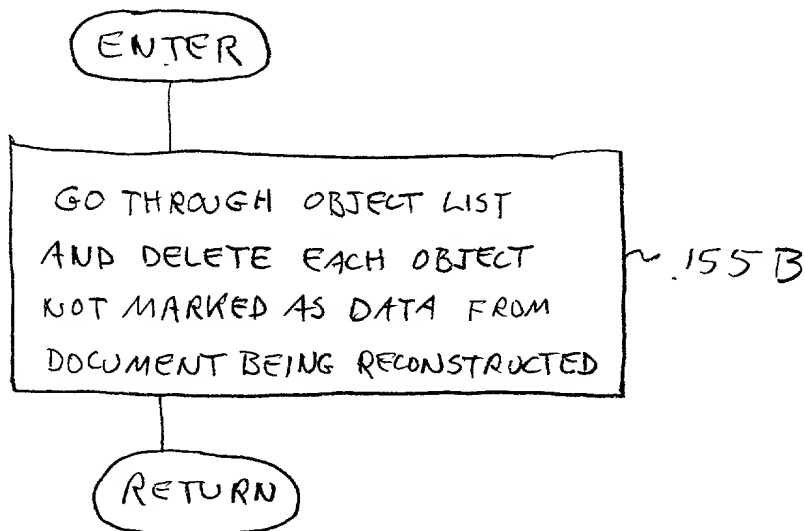 ENTER
GO THROUGH OBJECT LIST
AND DELETE EACH OBJECT
NOT MARKED AS DATA FROM
DOCUMENT BEING RECONSTRUCTED
155B
RETURN